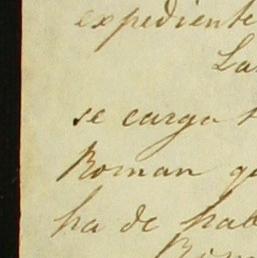 expediente
La
se carga
Roman
ha de hab
Rom